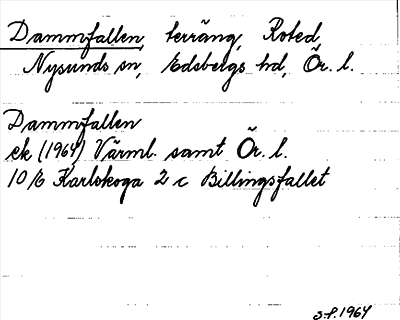 Dammfallen, terräng, Roted
Nysunds sn, Edsbergs hd, Ör. l.
Dammfallen
ek (1964) Värml. samt Ör. l.
10/6 Karlskoga 2 c Billingsfallet
S.f. 1964